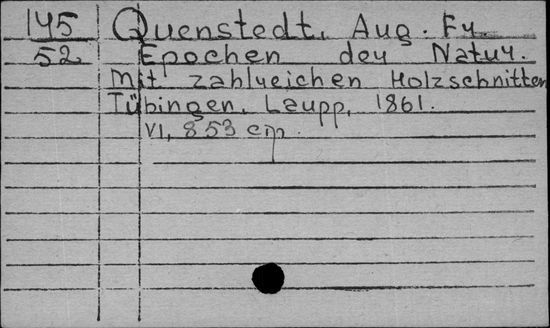 145 Quenstedt, Aug. Fr.
52 Epochen der Natur.
Mit zahlreichen Holzschnitten
Tübingen, Laupp, 1861.
VI, 853 cm.